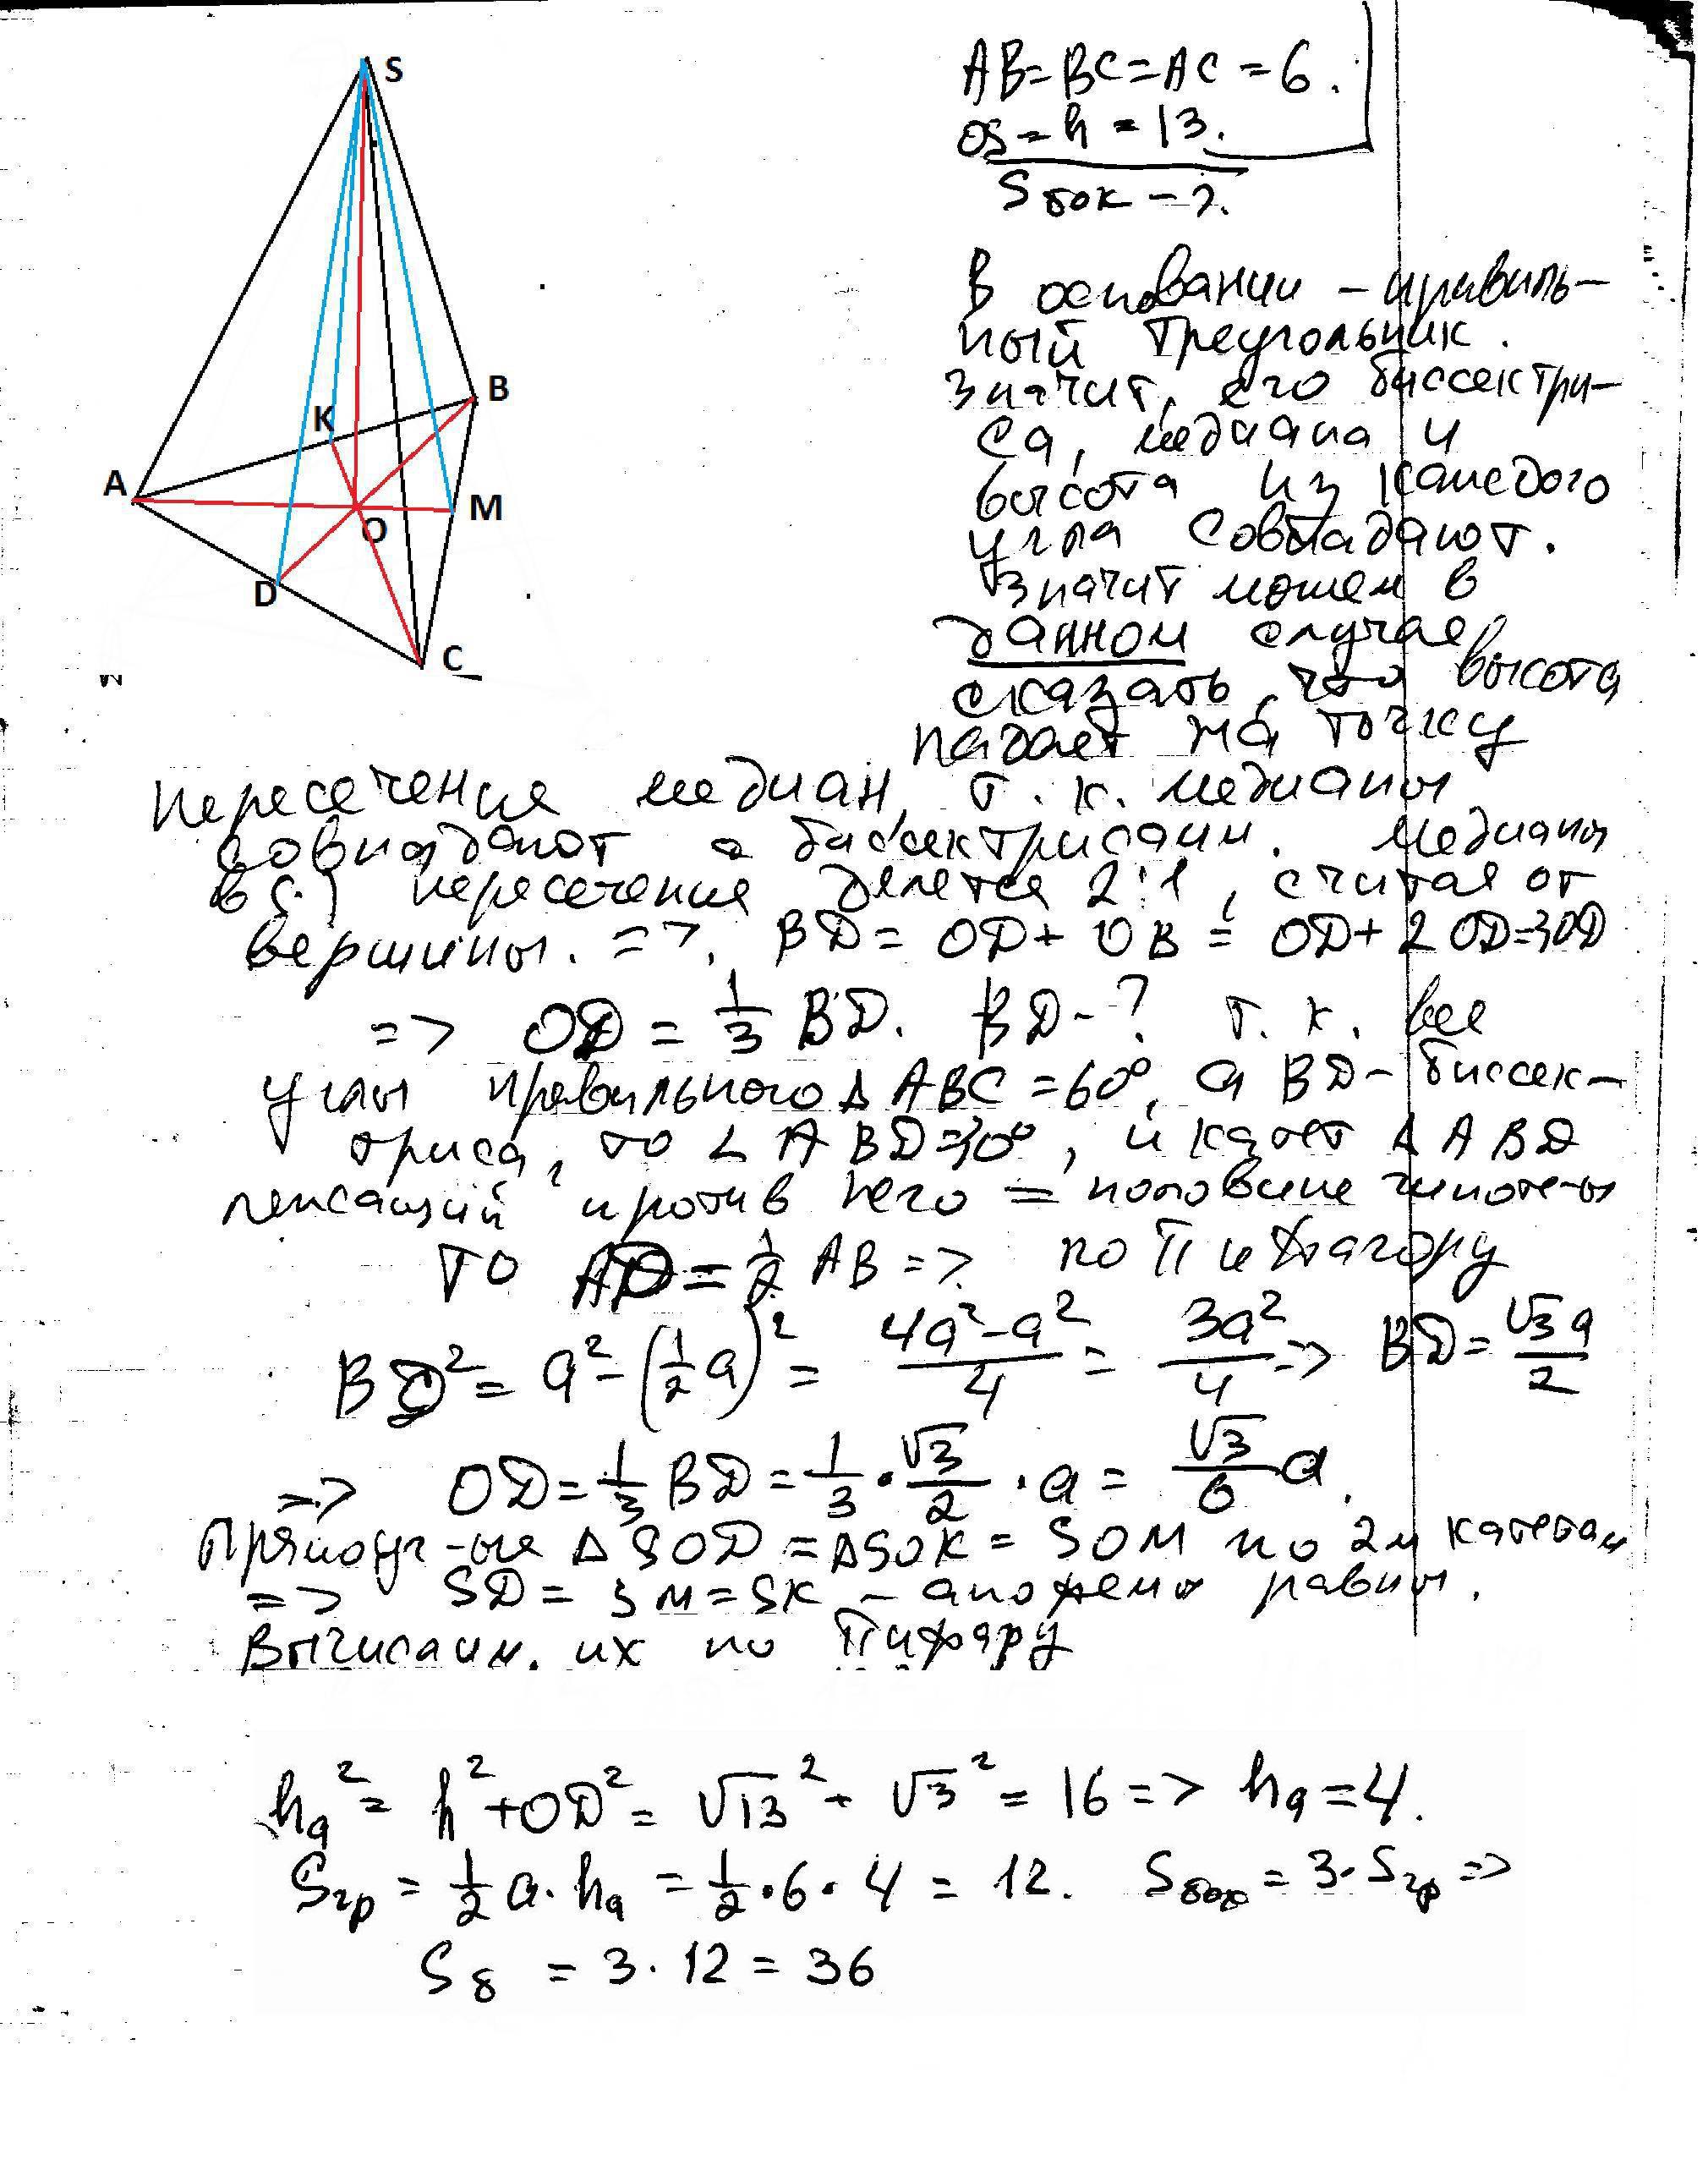 S
B
K
A
M
O
D
C
AB=BC=AC=6.
OS=h=13.
Sбок-?
В основании - правиль-
ный треугольник.
Значит, его биссектри-
са, медиана и
высота из каждого
угла совпадают.
Значит можем в
данном случае
сказать, что высота
падает на точку
пересечения медиан, т.к. медианы
совпадают с биссектрисами. Медианы
пересечения делятся 2:1, считая от
вершины. => BD = OD + OB = OD + 2OD=3OD
=> OD = 1/3 BD. BD-? Т.к. все
углы правильного Δ ABC = 60°, а BD - биссек-
триса, то ∠ABD=30°, и катет Δ ABD
лежащий против него = половине
то AD = 1/2 AB => по Пифагору
BD² = a² - (1/2 a)² = (4a²-a²)/4 = 3a²/4 => BD = √3a/2
=> OD = 1/3 BD = 1/3 · √3/2 · a = √3/6 a.
Прямоуг-ые Δ SOD = ΔSOK = SOM по 2м катетам
=> SD = SM = SK - апофемы равны.
Вычислим. их по
ha² = h² + OD² = √13² + √3² = 16 => ha = 4.
Sгр = 1/2 a·ha = 1/2 · 6 · 4 = 12. Sбок = 3·Sгр =>
Sб = 3·12 = 36